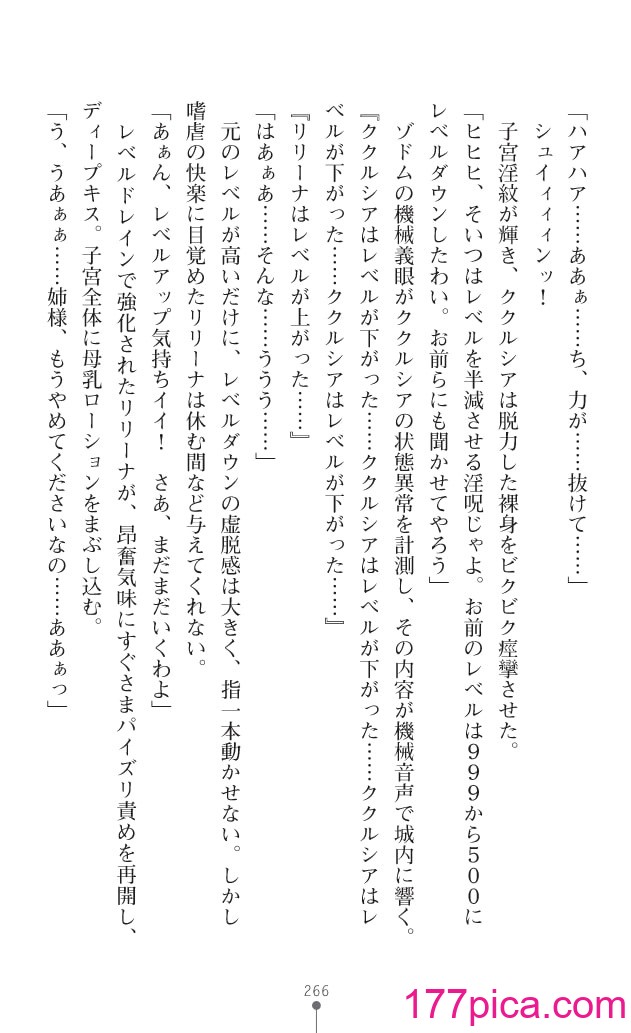 「ハアハア……ああぁ……ち、力が……抜けて……」
シュイィィィンッ！
子宮淫紋が輝き、ククルシアは脱力した裸身をビクビク痙攣させた。
「ヒヒヒ、そいつはレベルを半減させる淫呪じゃよ。お前のレベルは９９９から５００に
レベルダウンしたわい。お前らにも聞かせてやろう」
ゾドムの機械義眼がククルシアの状態異常を計測し、その内容が機械音声で城内に響く。
『ククルシアはレベルが下がった……ククルシアはレベルが下がった……ククルシアはレ
ベルが下がった……ククルシアはレベルが下がった……』
『リリーナはレベルが上がった……』
「はあぁあ……そんな……ううう……」
元のレベルが高いだけに、レベルダウンの虚脱感は大きく、指一本動かせない。しかし
嗜虐の快楽に目覚めたリリーナは休む間など与えてくれない。
「あぁん、レベルアップ気持ちイイ！　さあ、まだまだいくわよ」
レベルドレインで強化されたリリーナが、昂奮気味にすぐさまパイズリ責めを再開し、
ディープキス。子宮全体に母乳ローションをまぶし込む。
「う、うあぁぁ……姉様、もうやめてくださいなの……ああぁっ」
266
177pica.com